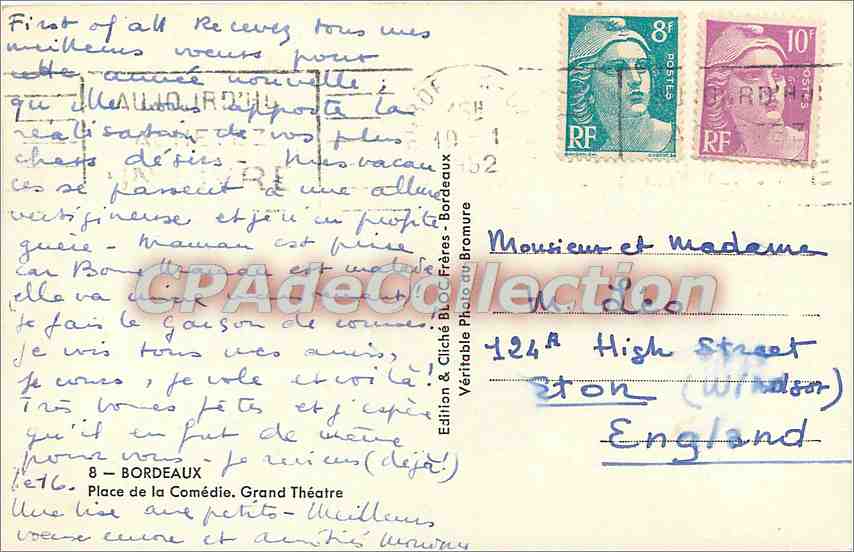 First of all Recevez tous mes
meilleurs voeux pour
cette année nouvelle ;
qu'elle vous apporte la
réalisation de vos plus
chers désirs - Mes vacan
ces se passent à une allure
vertigineuse et je n'en profite
guère - Maman est prise
car Bonne Maman est malade
elle va mieux maintenant !
je fais le garçon de courses !
je vois tous mes amis,
je cours, je vole et voilà !
Très bonnes fêtes et j'espère
qu'il en fut de même
pour vous - je reviens (déjà !)
le 16.
8 — BORDEAUX
Place de la Comédie. Grand Théatre
Une bise aux petits - Meilleurs
voeux encore et amitiés
Edition & Cliché BLOC Frères - Bordeaux
Véritable Photo au Bromure
8F
POSTES
RF
10F
POSTES
RF
AUJOURD'HUI
10 - 1
1952
Monsieur et Madame
M. Leo
124A High Street
Eton (Windsor)
England
CPADeCollection